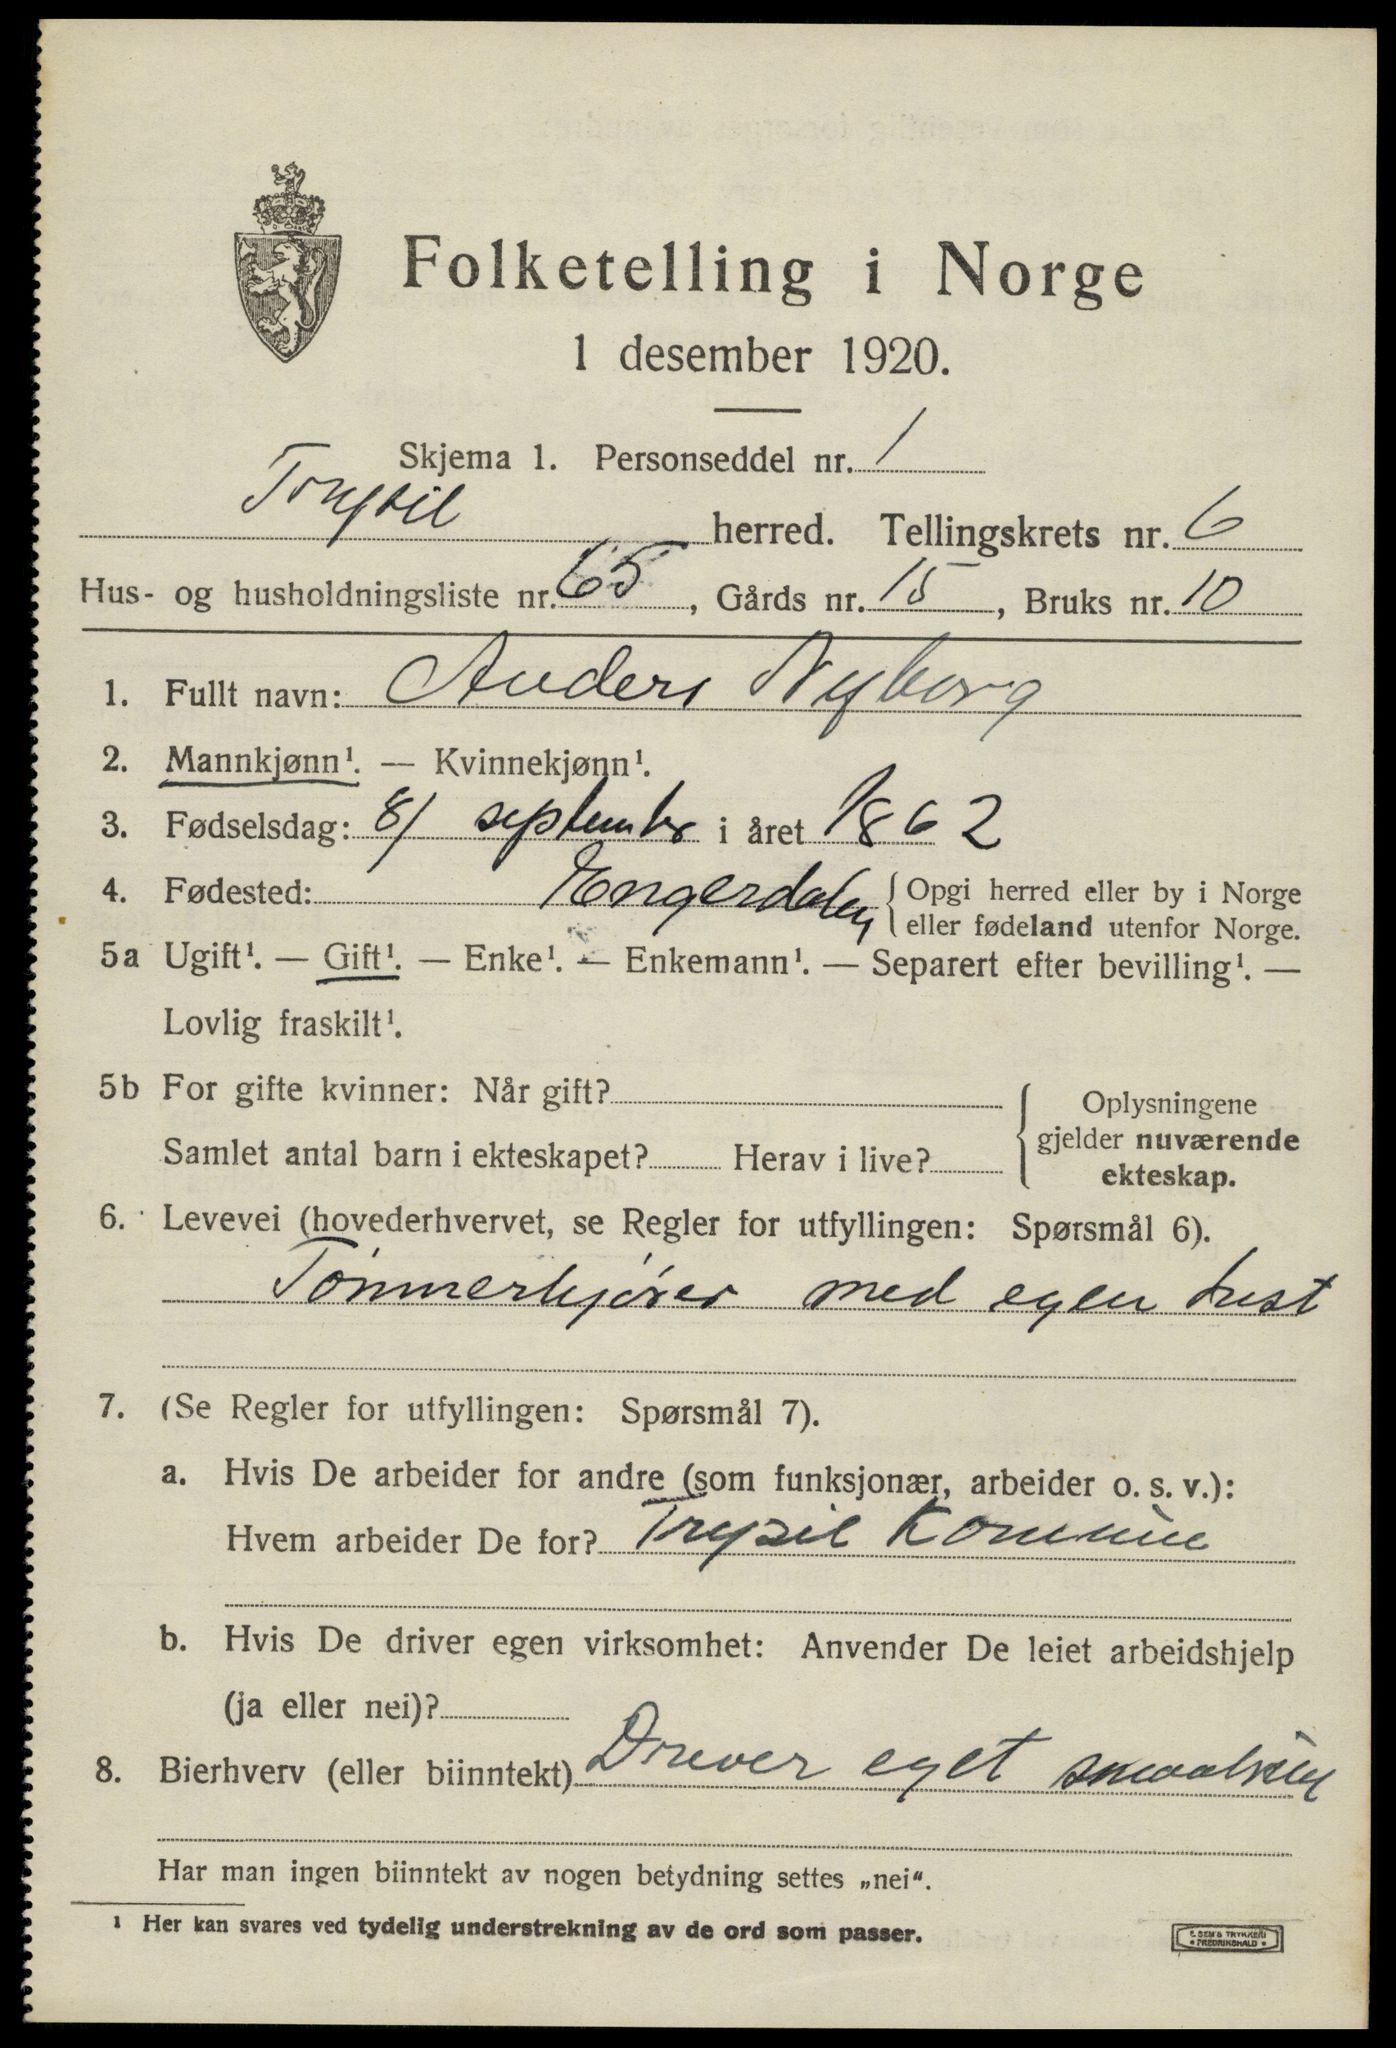 Folketelling i Norge
1 desember 1920.
Skjema 1. Personseddel nr. 1
Trysil herred. Tellingskrets nr. 6
Hus- og husholdningsliste nr. 65, Gårds nr. 15, Bruks nr. 10
1. Fullt navn: Anders Nyborg
2. Mannkjønn¹. — Kvinnekjønn¹.
3. Fødselsdag: 8/ september i året 1862
4. Fødested: Engerdalen { Opgi herred eller by i Norge
eller fødeland utenfor Norge.
5a Ugift¹. — Gift¹. — Enke¹. — Enkemann¹. — Separert efter bevilling¹. —
Lovlig fraskilt¹.
5b For gifte kvinner: Når gift?
Samlet antal barn i ekteskapet? Herav i live?
Oplysningene
gjelder nuværende
ekteskap.
6. Levevei (hovederhvervet, se Regler for utfyllingen: Spørsmål 6).
Tømmerkjører med egen hest
7. (Se Regler for utfyllingen: Spørsmål 7).
a. Hvis De arbeider for andre (som funksjonær, arbeider o. s. v.):
Hvem arbeider De for? Trysil Kommune
b. Hvis De driver egen virksomhet: Anvender De leiet arbeidshjelp
(ja eller nei)?
8. Bierhverv (eller biinntekt) Driver eget
Har man ingen biinntekt av nogen betydning settes „nei“.
¹ Her kan svares ved tydelig understrekning av de ord som passer.
E. SEM'S TRYKKERI
• FREDRIKSHALD •